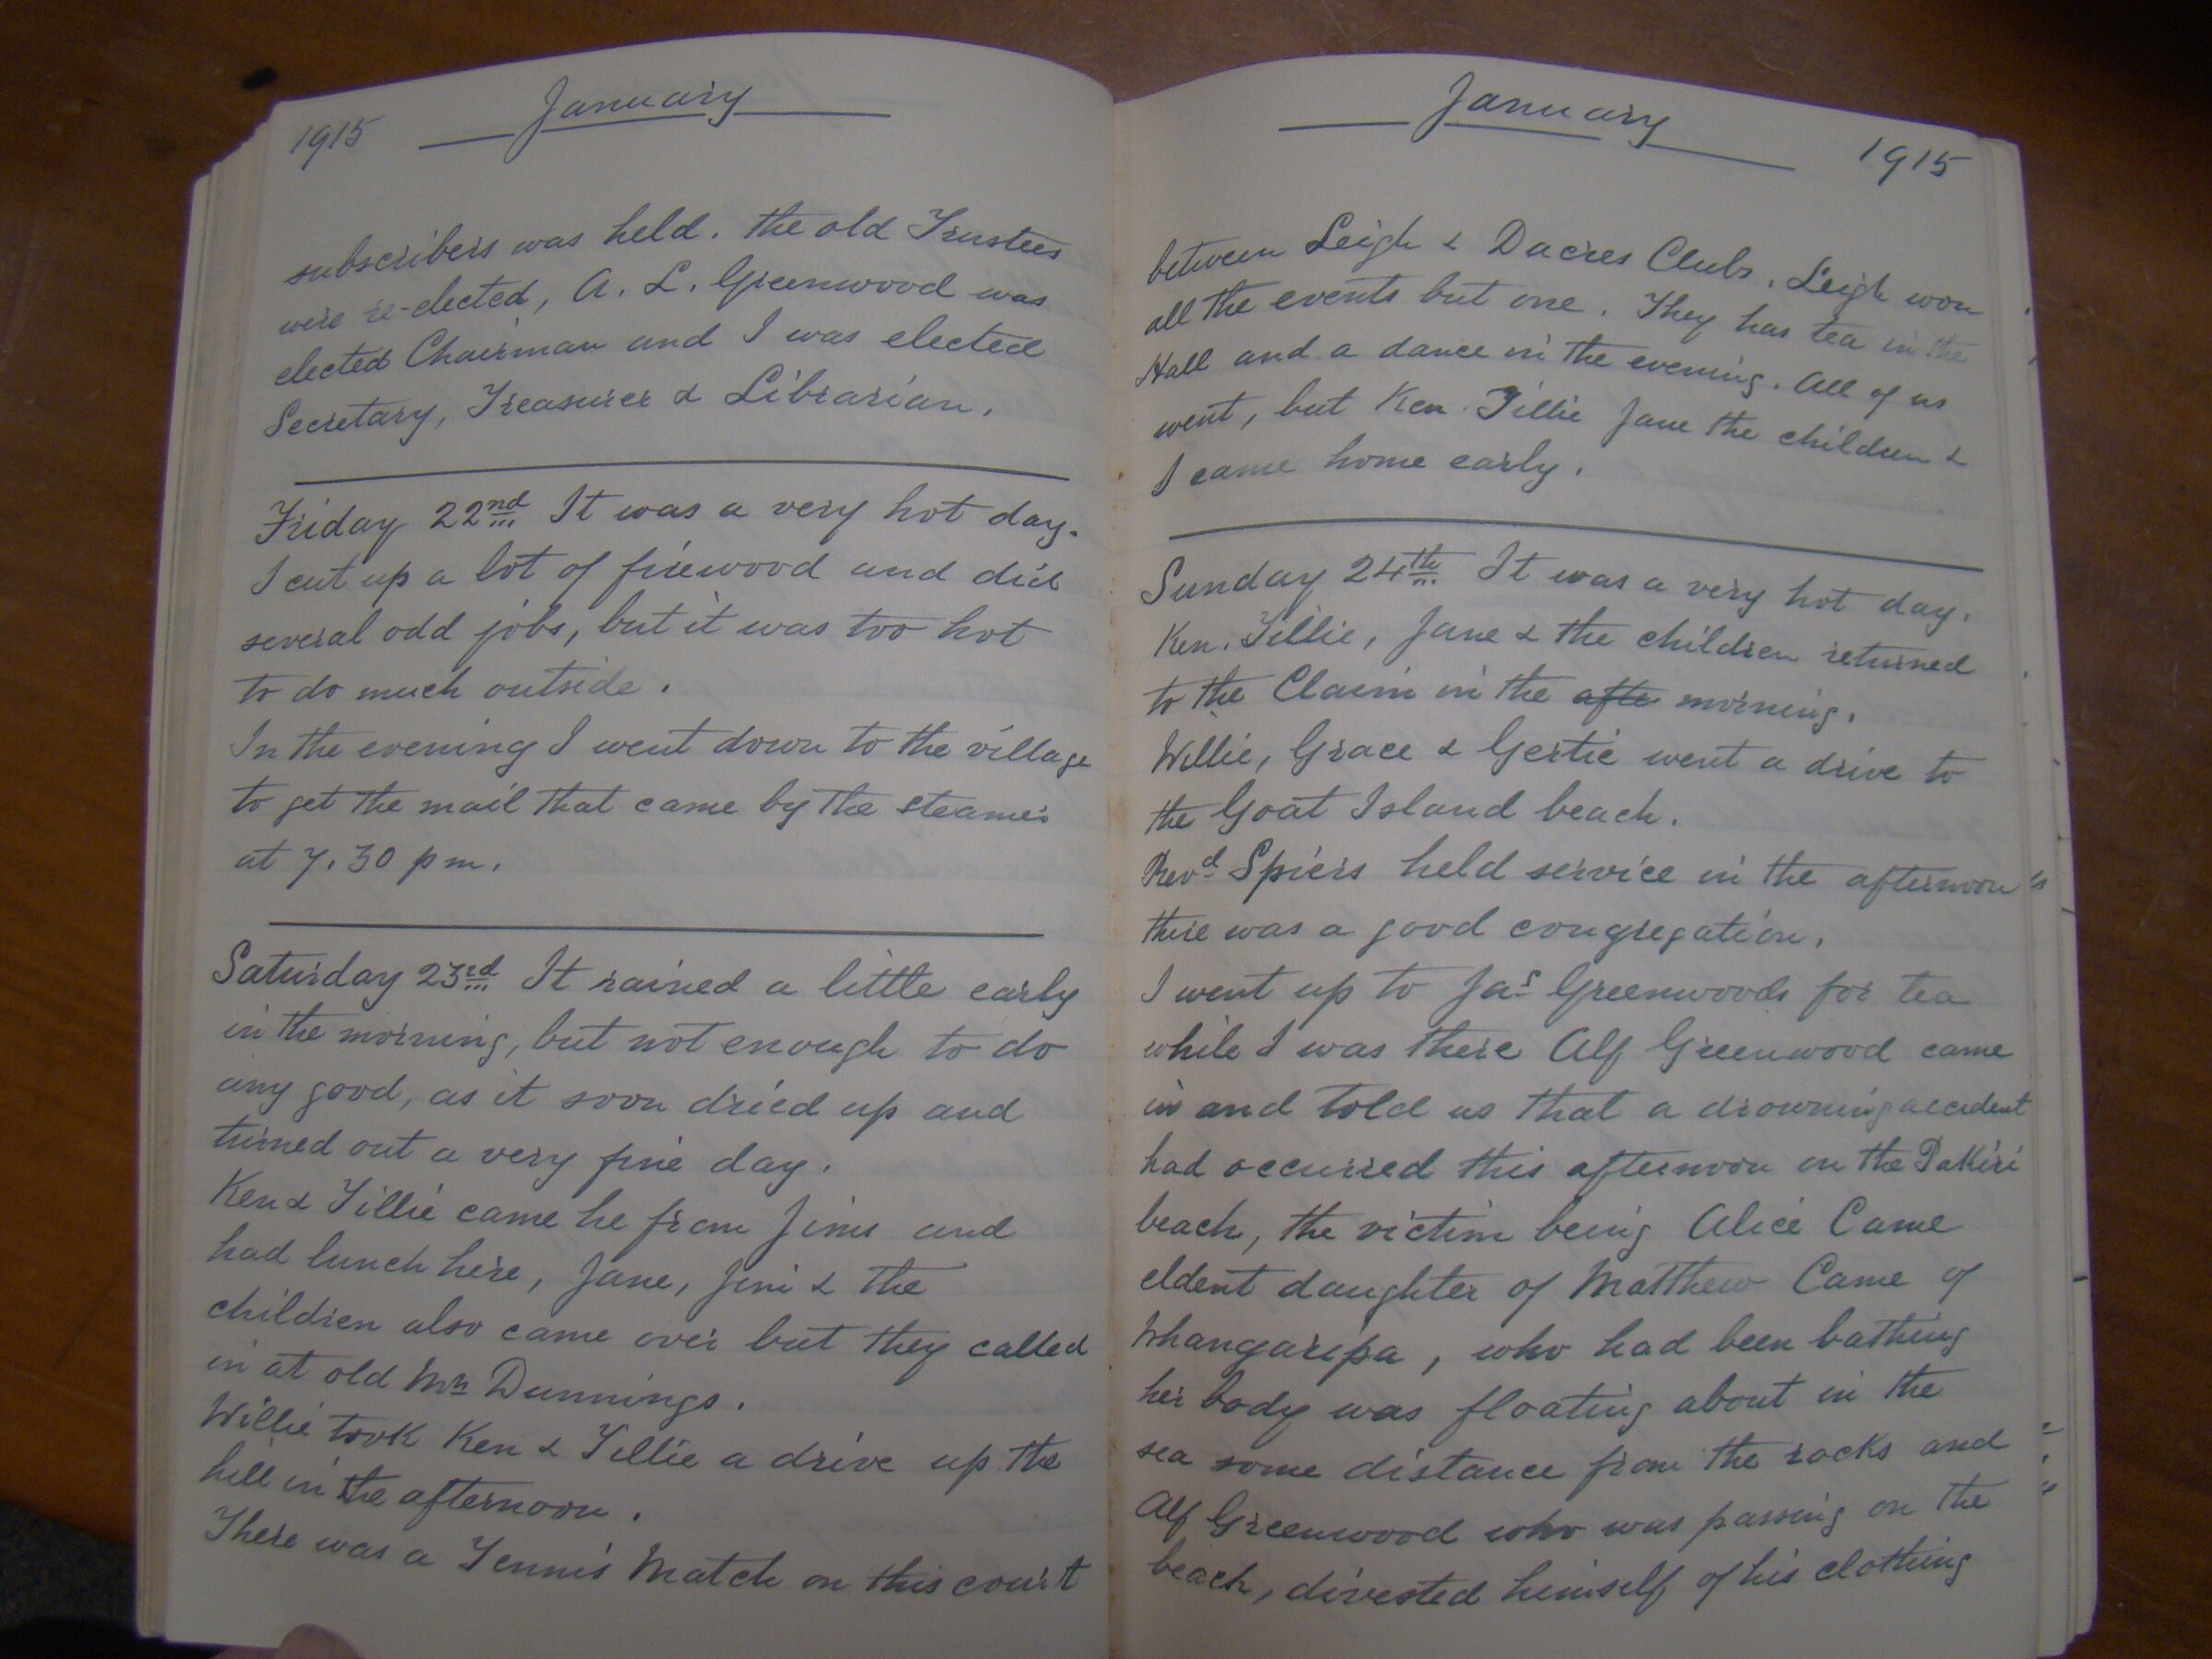 January
1915
subscribers was held. the old Trustees
were re-elected, A. L. Greenwood was
elected Chairman and I was elected
Secretary, Treasurer & Librarian.
Friday 22nd It was a very hot day.
I cut up a lot of firewood and did
several odd jobs, but it was too hot
to do much outside.
In the evening I went down to the village
to get the mail that came by the steamer
at 7.30 pm.
Saturday 23rd It rained a little early
in the morning, but not enough to do
any good, as it soon dried up and
turned out a very fine day.
Ken & Tillie came he from Jims and
had lunch here, Jane, Jim & the
children also came over but they called
in at old Mrs Dunnings.
Willie took Ken & Tillie a drive up the
hill in the afternoon.
There was a Tennis Match on this court
January
1915
between Leigh & Dacres Clubs. Leigh won
all the events but one. They has tea in the
Hall and a dance in the evening. All of us
went, but Ken. Tillie Jane the children &
I came home early.
Sunday 24th It was a very hot day.
Ken. Tillie, Jane & the children returned
to the Claim in the afte morning.
Willie, Grace & Gertie went a drive to
the Goat Island beach.
Revd Spiers held service in the afternoon
there was a good congregation.
I went up to Jas Greenwoods for tea
while I was there Alf Greenwood came
in and told us that a drowning accident
had occurred this afternoon on the Pakiri
beach, the victim being Alice Came
eldent daughter of Matthew Came of
Whangaripa, who had been bathing
her body was floating about in the
sea some distance from the rocks and
Alf Greenwood who was passing on the
beach, divested himself of his clothing